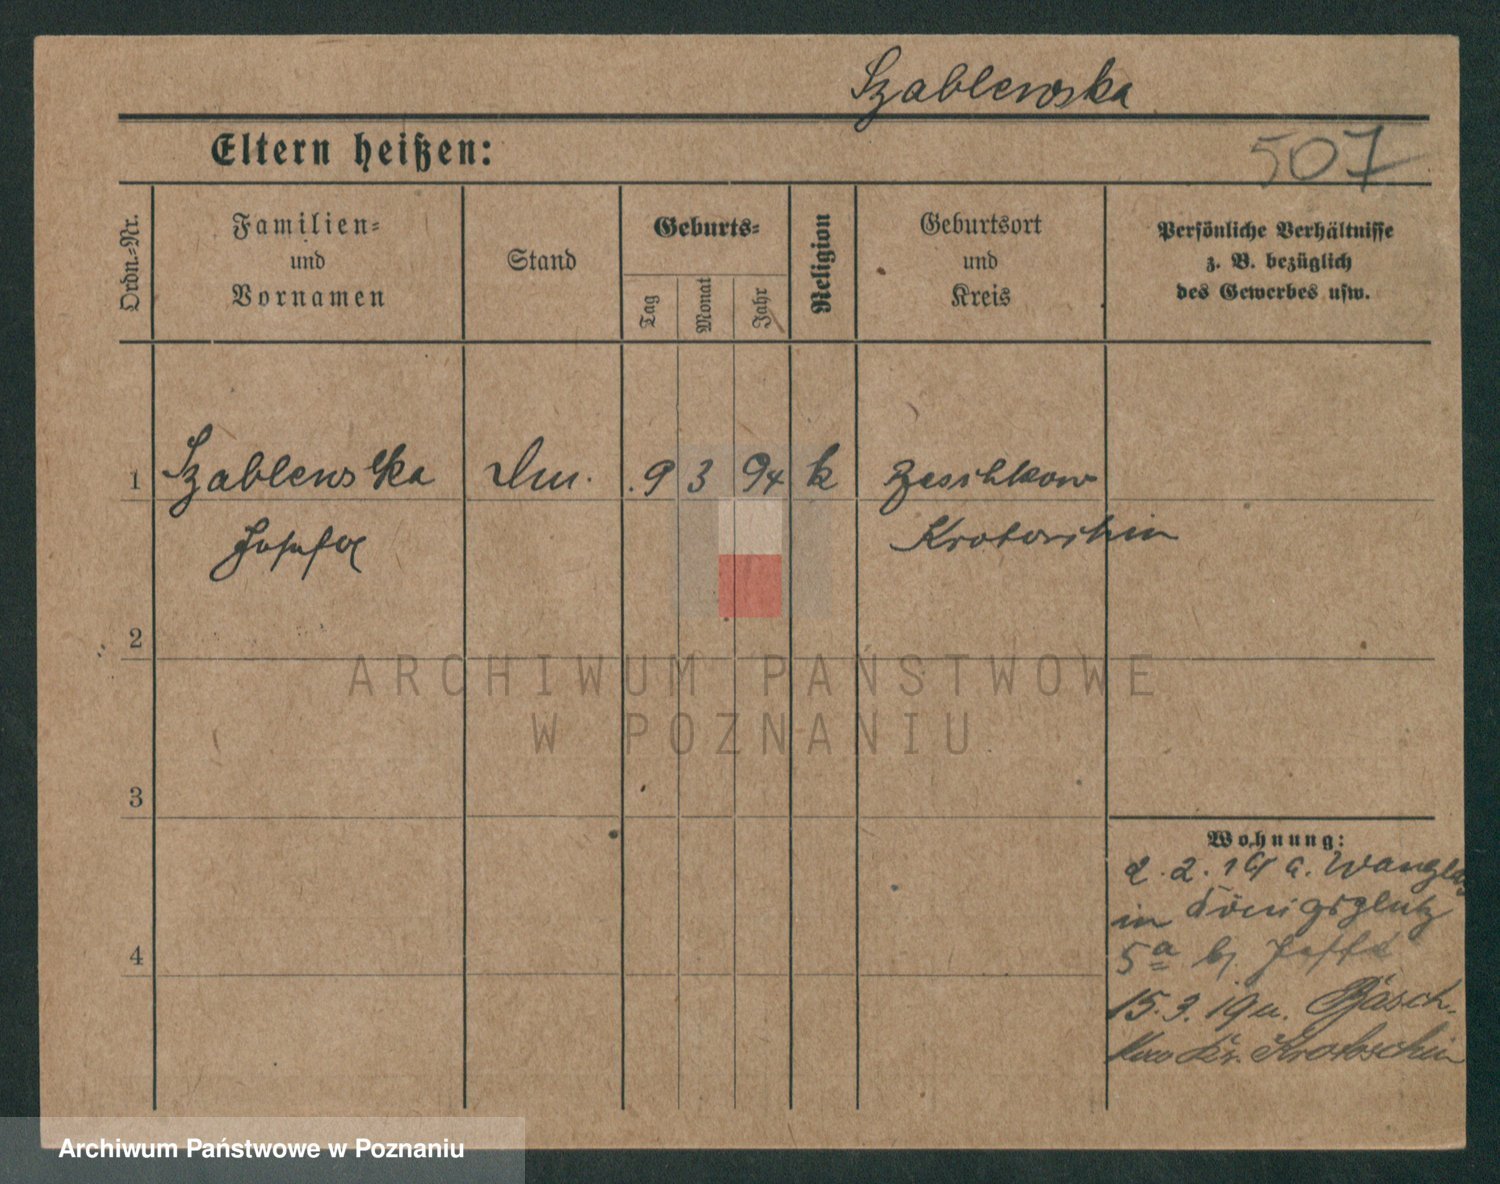 Szablewska
507
Eltern heißen:
Ordn.-Nr.
Familien-
und
Vornamen
Stand
Geburts-
Tag
Monat
Jahr
Religion
Geburtsort
und
Kreis
Persönliche Verhältnisse
z. B. bezüglich
des Gewerbes usw.
1 Szablewska 9 3 94 k
Josefa Krotoschin
2
ARCHIWUM PAŃSTWOWE
W POZNANIU
3
Wohnung:
2. 2. 19 a.
in Königsplatz
5a b/
4
15. 3. 19 u. Basch-
kow Kr. Krotoschin
Archiwum Państwowe w Poznaniu